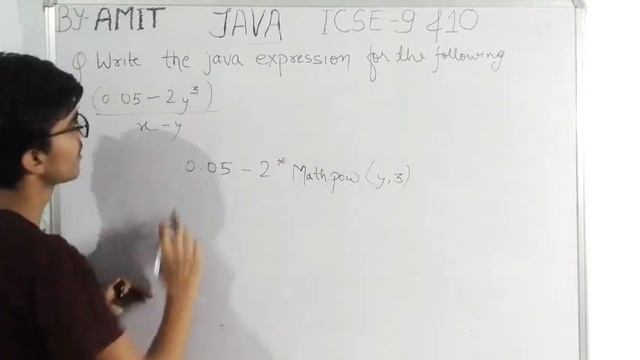 BY-AMIT JAVA ICSE-9 &10
Q Write the java expression for the following.
(0.05 - 2y³)
x - y
0.05 - 2 * Math.pow (y, 3)